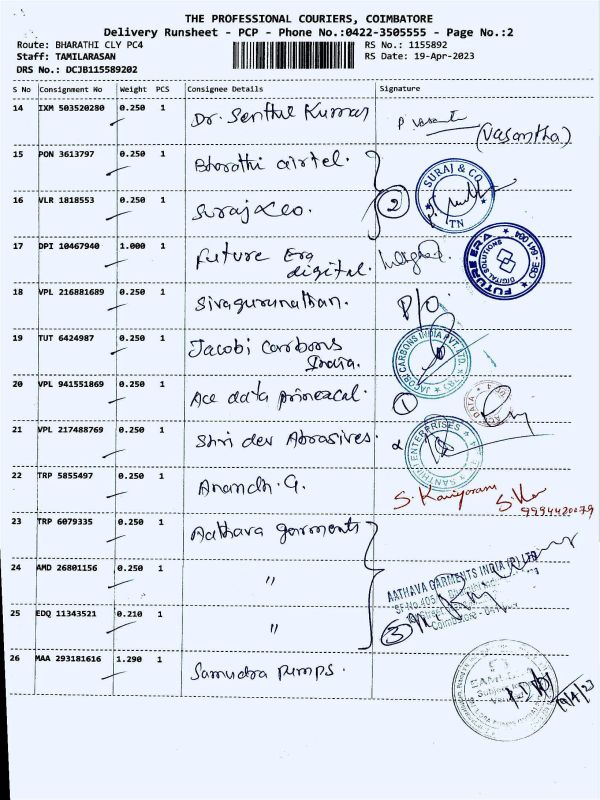 THE PROFESSIONAL COURIERS, COIMBATORE
Delivery Runsheet - PCP - Phone No.:0422-3505555 - Page No.:2
Route: BHARATHI CLY PC4
RS No.: 1155892
Staff: TAMILARASAN
RS Date: 19-Apr-2023
DRS No.: DCJB115589202
S No Consignment No Weight PCS Consignee Details Signature
14 IXM 503520280 0.250 1 Dr. Senthil Kumar P. Vasantha (Vasantha)
15 PON 3613797 0.250 1 Bharathi airtel.
SURAJ & CO. TN
16 VLR 1818553 0.250 1 Suraj & co. 2
17 DPI 10467940 1.000 1 Future Era
digital.
FUTURE ERA DIGITAL SOLUTIONS CBE - 641 004
18 VPL 216881689 0.250 1 Sivagurunathan. P/O
19 TUT 6424987 0.250 1 Jacobi Carbons
India.
JACOBI CARBONS INDIA PVT. LTD.
20 VPL 941551869 0.250 1 Ace data 1
ACE DATA
21 VPL 217488769 0.250 1 Shri dev Abrasives.
ENTERPRISES
22 TRP 5855497 0.250 1 Anandh. G.
9994420079
23 TRP 6079335 0.250 1 Aathava garments
24 AMD 26801156 0.250 1 "
AATHAVA GARMENTS INDIA (P) LTD
SF No.405
25 EDQ 11343521 0.210 1 "
3
Coimbatore
26 MAA 293181616 1.290 1 Samudra Pumps.
19/4/23